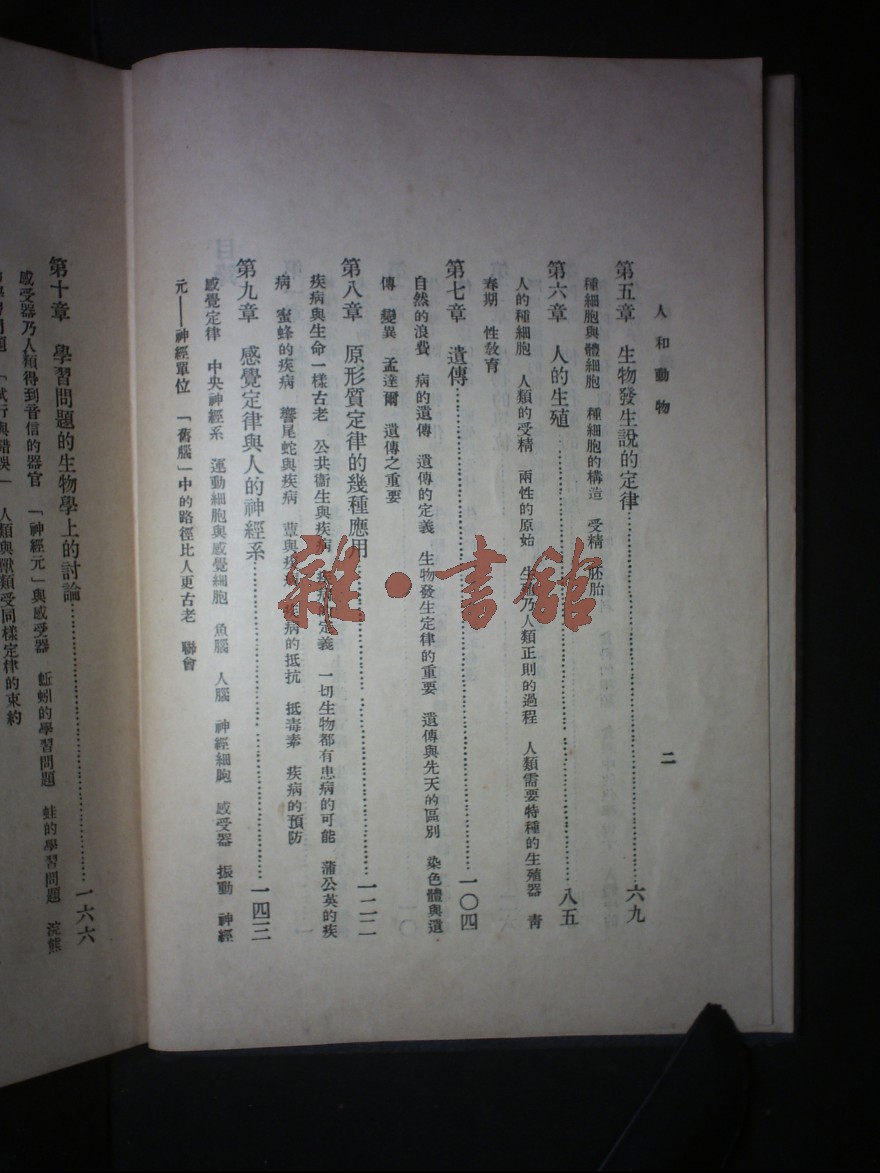 人和動物
二
第五章 生物發生說的定律……六九
種細胞與體細胞 種細胞的構造 受精 胚胎
第六章 人的生殖……八五
人的種細胞 人類的受精 兩性的原始 生殖乃人類正則的過程 人類需要特種的生殖器 青
春期 性敎育
第七章 遺傳……一〇四
自然的浪費 病的遺傳 遺傳的定義 生物發生定律的重要 遺傳與先天的區別 染色體與遺
傳 變異 孟達爾 遺傳之重要
第八章 原形質定律的幾種應用……一二二
疾病與生命一樣古老 公共衞生與疾病 疾病的定義 一切生物都有患病的可能 蒲公英的疾
病 蜜蜂的疾病 響尾蛇與疾病 蕈與疾病 疾病的抵抗 抵毒素 疾病的預防
第九章 感覺定律與人的神經系……一四三
感覺定律 中央神經系 運動細胞與感覺細胞 魚腦 人腦 神經細胞 感受器 振動 神經
元——神經單位 「舊腦」中的路徑比人更古老 聯會
第十章 學習問題的生物學上的討論……一六六
感受器乃人類得到音信的器官 「神經元」與感受器 蚯蚓的學習問題 蛙的學習問題 浣熊
學習問題 「試行與錯誤」 人類與獸類受同樣定律的束約
雜·書館